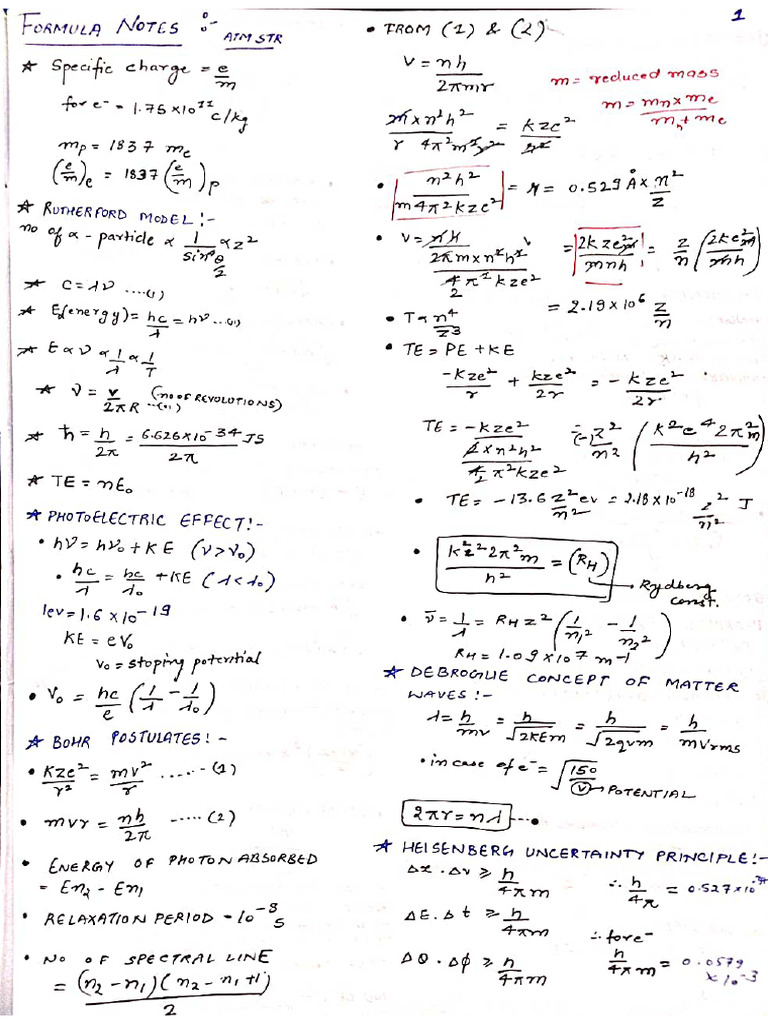 FORMULA NOTES :-
ATMSTR
★ Specific charge = e/m
for e⁻ = 1.75×10¹¹ C/kg
mp = 1837 me
(e/m)e = 1837 (e/m)p
★ RUTHERFORD MODEL :-
no of α - particle ∝ 1/(sin⁴ θ/2) ∝ z²
★ C = λν ....(1)
★ E(energy) = hc/λ = hν ...(1)
★ E ∝ ν ∝ 1/λ ∝ 1/T
★ ν = v/2πR (no of REVOLUTIONS)
★ ħ = h/2π = 6.626×10⁻³⁴/2π JS
★ TE = nE₀
★ PHOTOELECTRIC EFFECT :-
• hν = hν₀ + KE (ν>ν₀)
• hc/λ = hc/λ₀ + KE (λ<λ₀)
1ev = 1.6×10⁻¹⁹
KE = eV₀
V₀ = stoping potential
• V₀ = hc/e (1/λ - 1/λ₀)
★ BOHR POSTULATES :-
• Kze²/r² = mv²/r ......(1)
• mvr = nh/2π .....(2)
• ENERGY OF PHOTON ABSORBED
= En₂ - En₁
• RELAXATION PERIOD - 10⁻⁸ s
• NO OF SPECTRAL LINE
= (n₂-n₁)(n₂-n₁+1)/2
1
• FROM (1) & (2)
v = nh/2πmr
m = reduced mass
m×n²h²/r 4π²m²r² = kze²/r²
m = mn×me/mn+me
• n²h²/m4π²kze² = r = 0.529 Å × n²/z
• v = nh/(2πm×n²h²/4π²kze²) = 2kze²π/nh = z/n (2ke²π/h)
= 2.19×10⁶ z/n
• T ∝ n⁴/z³
• TE = PE + KE
-Kze²/r + kze²/2r = -kze²/2r
TE = -kze²/(2×n²h²/4π²kze²) = (-)z²/n² (k²e⁴2π²m/h²)
• TE = -13.6 z²/n² ev = 2.18×10⁻¹⁸ z²/n² J
• K²z²2π²m/h² = (RH)
Rydberg
const.
• ν̄ = 1/λ = RH z² (1/n₁² - 1/n₂²)
RH = 1.09×10⁷ m⁻¹
★ DEBROGLIE CONCEPT OF MATTER
WAVES :-
λ = h/mv = h/√2KEm = h/√2qvm = h/mVrms
• in case of e⁻ = √150/V → POTENTIAL
2πr = nλ ---•
★ HEISENBERG UNCERTAINTY PRINCIPLE :-
Δx . Δv ≥ h/4πm ∴ h/4π = 0.527×10⁻³⁴
ΔE . Δt ≥ h/4πm
∴ for e⁻
Δθ . Δϕ ≥ h/4πm h/4πm = 0.0579
×10⁻³